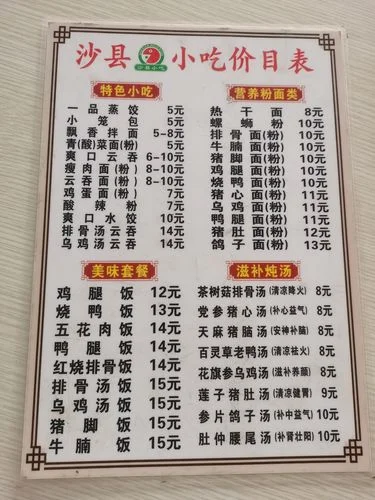 沙县小吃价目表
沙县小吃
特色小吃
一品蒸饺 5元
小笼包 5元
飘香拌面 5-8元
青(酸)菜面(粉) 5元
爽口云吞 6-10元
瘦肉面(粉) 8-10元
云吞面(粉) 8-10元
鸡蛋面(粉) 7元
酸辣粉 7元
爽口水饺 10元
排骨汤云吞 14元
乌鸡汤云吞 14元
营养粉面类
热干面 8元
螺蛳粉 10元
排骨面(粉) 10元
牛腩面(粉) 10元
猪脚面(粉) 10元
鸡腿面(粉) 10元
烧鸭面(粉) 10元
猪心面(粉) 11元
乌鸡面(粉) 11元
鸭腿面(粉) 11元
猪肚面(粉) 12元
鸽子面(粉) 13元
美味套餐
鸡腿饭 12元
烧鸭饭 13元
五花肉饭 14元
鸭腿饭 14元
红烧排骨饭 14元
排骨汤饭 15元
乌鸡汤饭 15元
猪脚饭 15元
牛腩饭 15元
滋补炖汤
茶树菇排骨汤(清凉降火) 8元
党参猪心汤(补心益气) 8元
天麻猪脑汤(安神补脑) 8元
百灵草老鸭汤(清凉祛火) 8元
花旗参乌鸡汤(滋补养颜) 8元
莲子猪肚汤(清凉健胃) 9元
参片鸽子汤(补中益气) 10元
肚仲腰尾汤(补肾壮阳) 10元